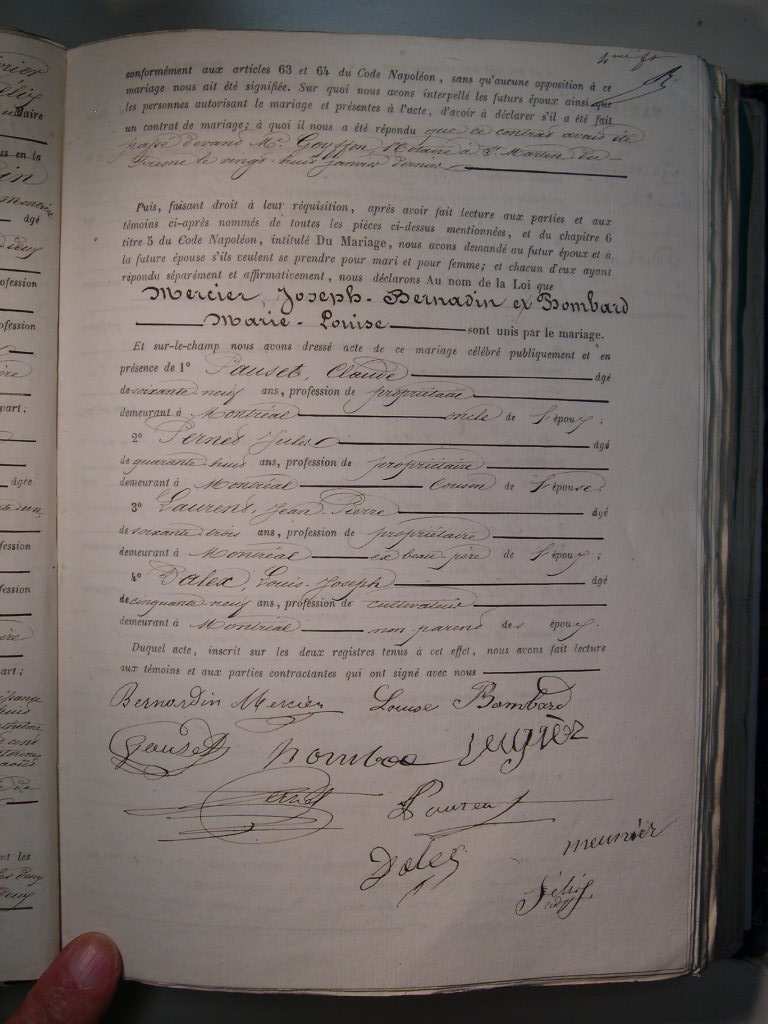 conformément aux articles 63 et 64 du Code Napoléon, sans qu'aucune opposition à ce
mariage nous ait été signifiée. Sur quoi nous avons interpellé les futurs époux ainsi que
les personnes autorisant le mariage et présentes à l'acte, d'avoir à déclarer s'il a été fait
un contrat de mariage; à quoi il nous a été répondu que ce contrat avait été
passé devant Me Goyffon, Notaire à St Martin du
Fresne le vingt-huit janvier dernier
Puis, faisant droit à leur réquisition, après avoir fait lecture aux parties et aux
témoins ci-après nommés de toutes les pièces ci-dessus mentionnées, et du chapitre 6
titre 5 du Code Napoléon, intitulé Du Mariage, nous avons demandé au futur époux et à
la future épouse s'ils veulent se prendre pour mari et pour femme; et chacun d'eux ayant
répondu séparément et affirmativement, nous déclarons Au nom de la Loi que
Mercier, Joseph-Bernadin et Bombard
Marie-Louise sont unis par le mariage.
Et sur-le-champ nous avons dressé acte de ce mariage célébré publiquement et en
présence de 1° Pauset, Claude âgé
de soixante neuf ans, profession de propriétaire
demeurant à Montréal oncle de l'époux;
2° Pernet Jules âgé
de quarante-huit ans, profession de propriétaire
demeurant à Montréal cousin de l'épouse;
3° Laurent, Jean-Pierre âgé
de soixante trois ans, profession de propriétaire
demeurant à Montréal ex beau père de l'époux;
4° Dalex, Louis-Joseph âgé
de cinquante neuf ans, profession de cultivateur
demeurant à Montréal non parent des époux.
Duquel acte, inscrit sur les deux registres tenus à cet effet, nous avons fait lecture
aux témoins et aux parties contractantes qui ont signé avec nous
Bernardin Mercier Louise Bombard
Pernet Laurent
meunier